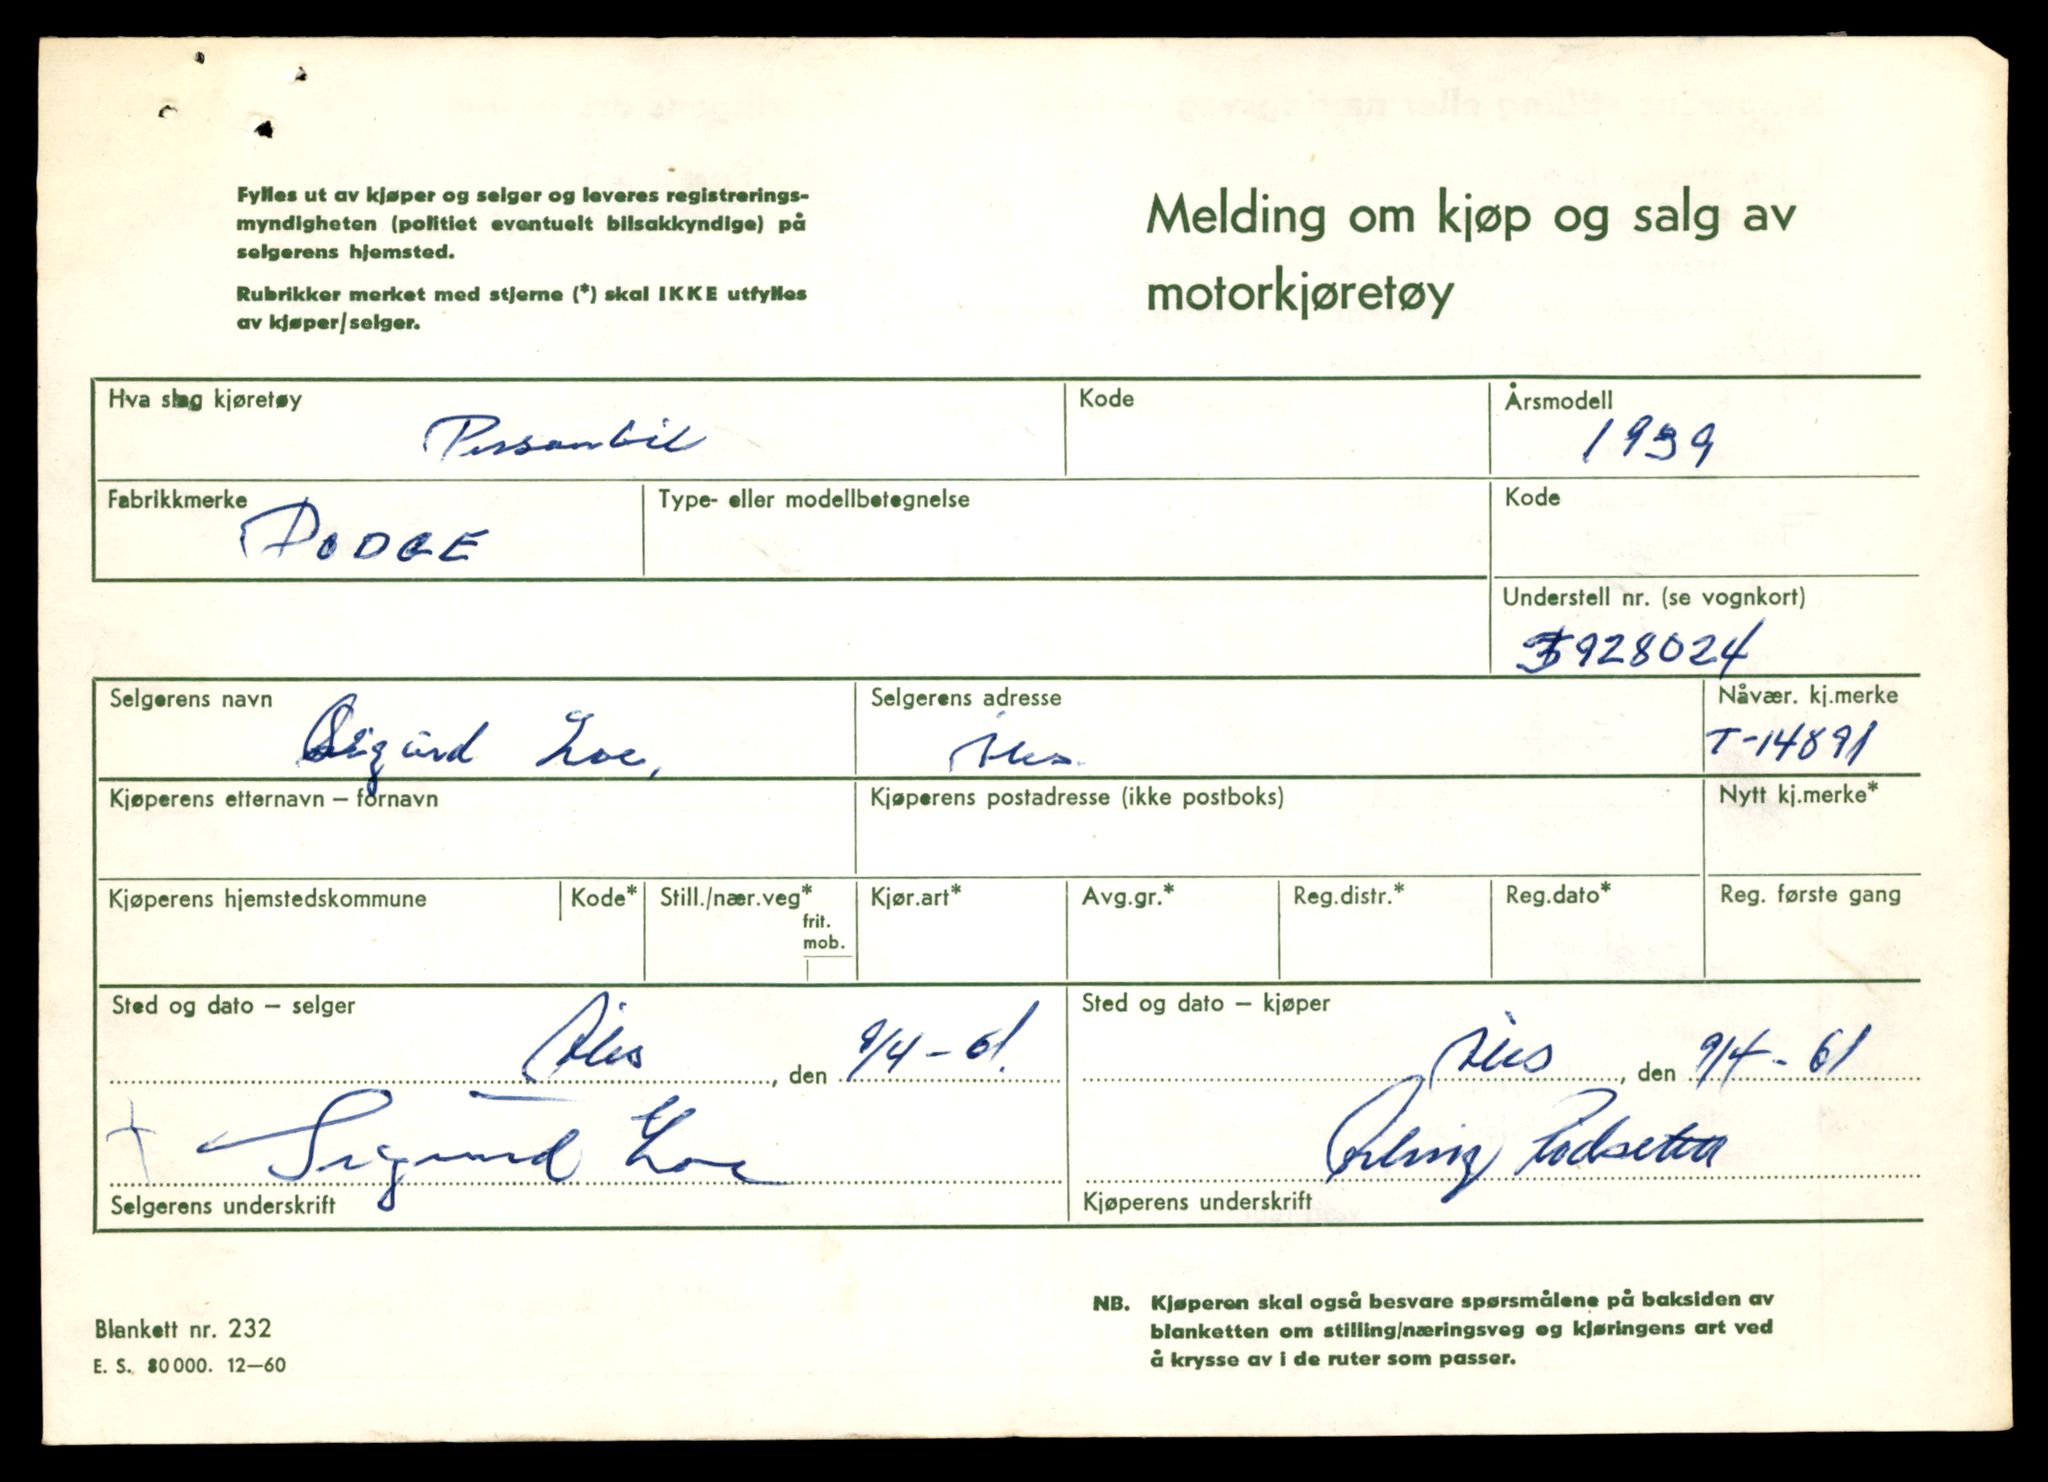 Fylles ut av kjøper og selger og leveres registrerings-
myndigheten (politiet eventuelt bilsakkyndige) på
selgerens hjemsted.
Rubrikker merket med stjerne (*) skal IKKE utfylles
av kjøper/selger.
Melding om kjøp og salg av
motorkjøretøy
Hva slag kjøretøy Kode Årsmodell
Personbil 1939
Fabrikkmerke Type- eller modellbetegnelse Kode
DODGE
Understell nr. (se vognkort)
928024
Selgerens navn Selgerens adresse Nåvær. kj.merke
Sigurd Loe, Ales T-14891
Kjøperens etternavn – fornavn Kjøperens postadresse (ikke postboks) Nytt kj.merke*
Kjøperens hjemstedskommune Kode* Still./nær.veg* Kjør.art* Avg.gr.* Reg.distr.* Reg.dato* Reg. første gang
frit.
mob.
Sted og dato – selger Sted og dato – kjøper
Ales, den 9/4-61. Ales, den 9/4-61
Sigurd Loe
Selgerens underskrift Kjøperens underskrift
Blankett nr. 232
E. S. 80 000. 12–60
NB. Kjøperen skal også besvare spørsmålene på baksiden av
blanketten om stilling/næringsveg og kjøringens art ved
å krysse av i de ruter som passer.